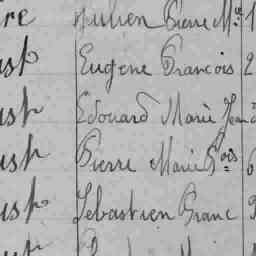 re Julien Pierre M 1
ust Eugene Francois 2
ust Edouard Marie Jean
ust Pierre Marie Fois 6
ust Sebastien Franc